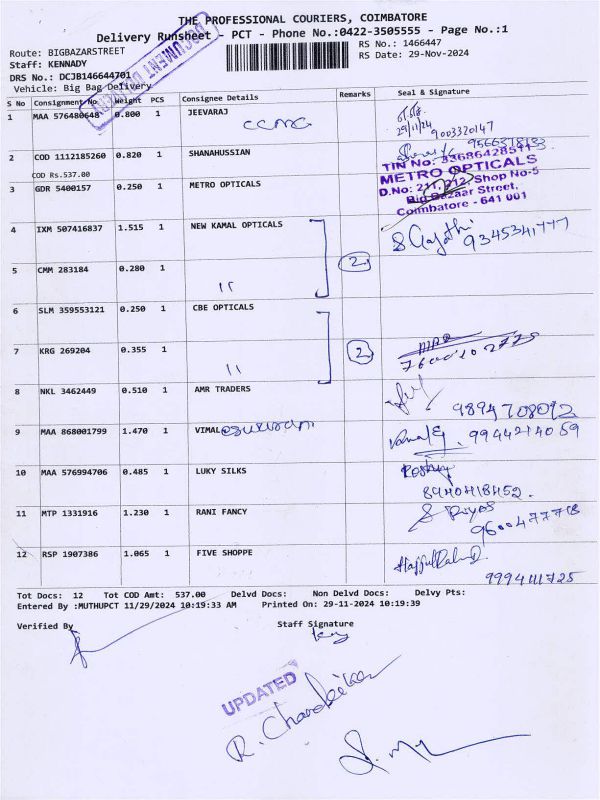 THE PROFESSIONAL COURIERS, COIMBATORE
Delivery Runsheet - PCT - Phone No.:0422-3505555 - Page No.:1
Route: BIGBAZARSTREET
RS No.: 1466447
Staff: KENNADY
RS Date: 29-Nov-2024
DRS No.: DCJB146644701
Vehicle: Big Bag Delivery
S No Consignment No Weight PCS Consignee Details Remarks Seal & Signature
1 MAA 576480648 0.800 1 JEEVARAJ
CCMC
29/11/24
9003320147
2 COD 1112185260 0.820 1 SHANAHUSSIAN
COD Rs.537.00
TIN No: 33686428541
3 GDR 5400157 0.250 1 METRO OPTICALS
METRO OPTICALS
D.No: 211, 212, Shop No-5
Big Bazaar Street,
Coimbatore - 641 001
4 IXM 507416837 1.515 1 NEW KAMAL OPTICALS
S Gayathri
9345341777
5 CMM 283184 0.280 1 11 2
6 SLM 359553121 0.250 1 CBE OPTICALS
7 KRG 269204 0.355 1 11 2
8 NKL 3462449 0.510 1 AMR TRADERS
9894708092
9 MAA 868001799 1.470 1 VIMAL
9944214059
10 MAA 576994706 0.485 1 LUKY SILKS
8940418452.
11 MTP 1331916 1.230 1 RANI FANCY
9600477718
12 RSP 1907386 1.065 1 FIVE SHOPPE
9994111725
Tot Docs: 12 Tot COD Amt: 537.00 Delvd Docs: Non Delvd Docs: Delvy Pts:
Entered By :MUTHUPCT 11/29/2024 10:19:33 AM Printed On: 29-11-2024 10:19:39
Verified By
Staff Signature
UPDATED